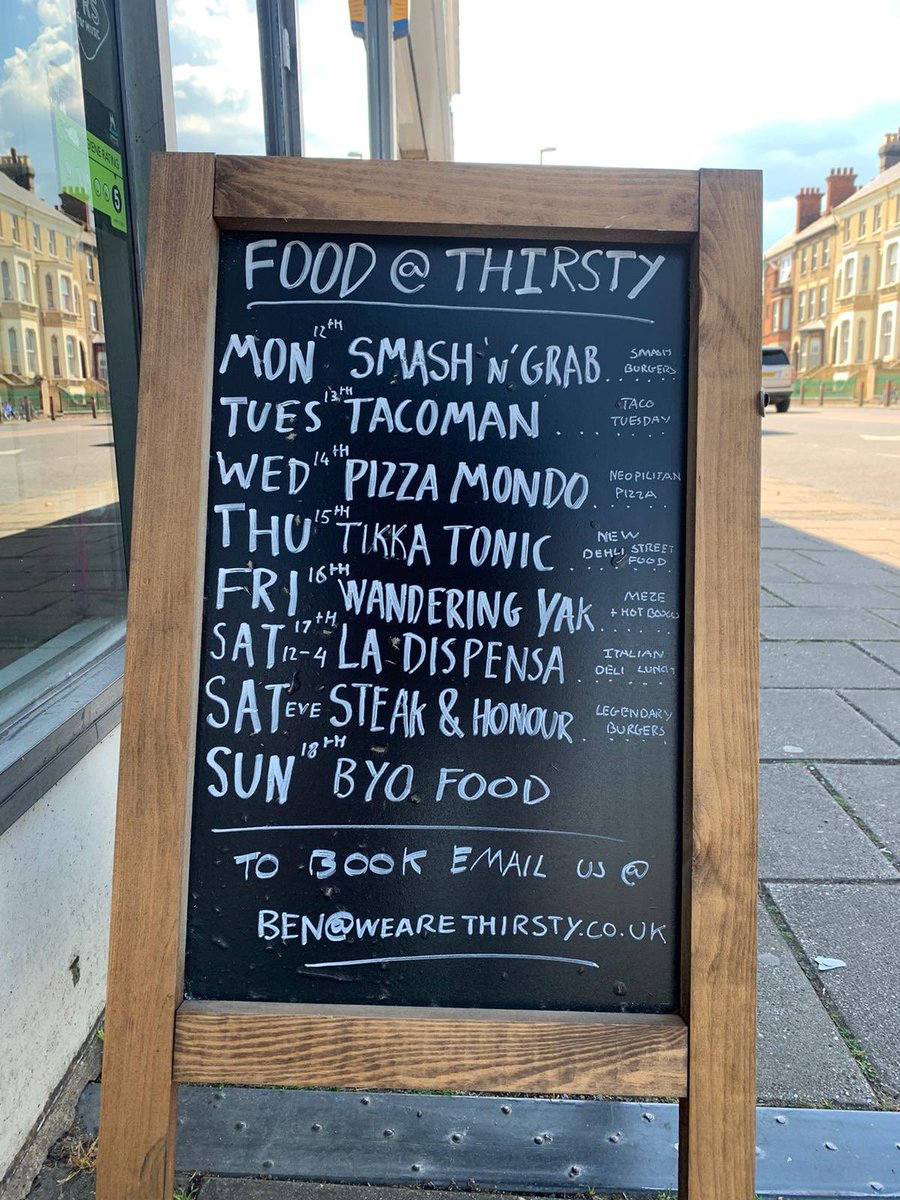 ENE RATING
5
FOOD @ THIRSTY
MON 12TH SMASH 'N' GRAB SMASH BURGERS
TUES 13TH TACOMAN .... TACO TUESDAY
WED 14TH PIZZA MONDO NEOPILITAN PIZZA
THU 15TH TIKKA TONIC NEW DEHLI STREET FOOD
FRI 16TH WANDERING YAK MEZE + HOT BOXES
SAT 17TH 12-4 LA DISPENSA ITALIAN DELI LUNCH
SAT EVE STEAK & HONOUR LEGENDARY BURGERS
SUN 18TH BYO FOOD
TO BOOK EMAIL US @
BEN@WEARETHIRSTY.CO.UK